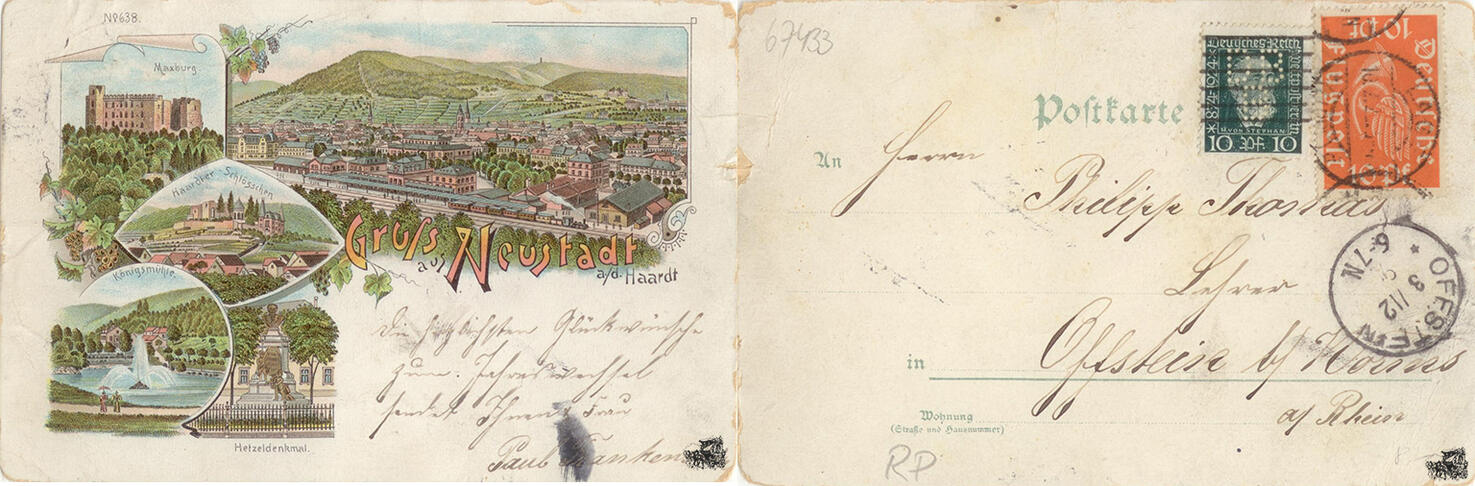 No 638.
Maxburg.
Haardter Schlösschen
Königsmühle.
Hetzeldenkmal.
Gruss
aus Neustadt
a/d. Haardt
Die herzlichsten Glückwünsche
zum Jahreswechsel
sendet Ihnen Frau
Paul
67433
Postkarte
Deutsches Reich
1874-1924
H. VON STEPHAN
10 10
10 Pf
Deutsche
Flugpost
An Herrn
Philipp Thomas
Lehrer
in Offstein b/ Worms
a/ Rhein
Wohnung
(Straße und Hausnummer)
OFFSTEIN
3/12
6-7N
RP